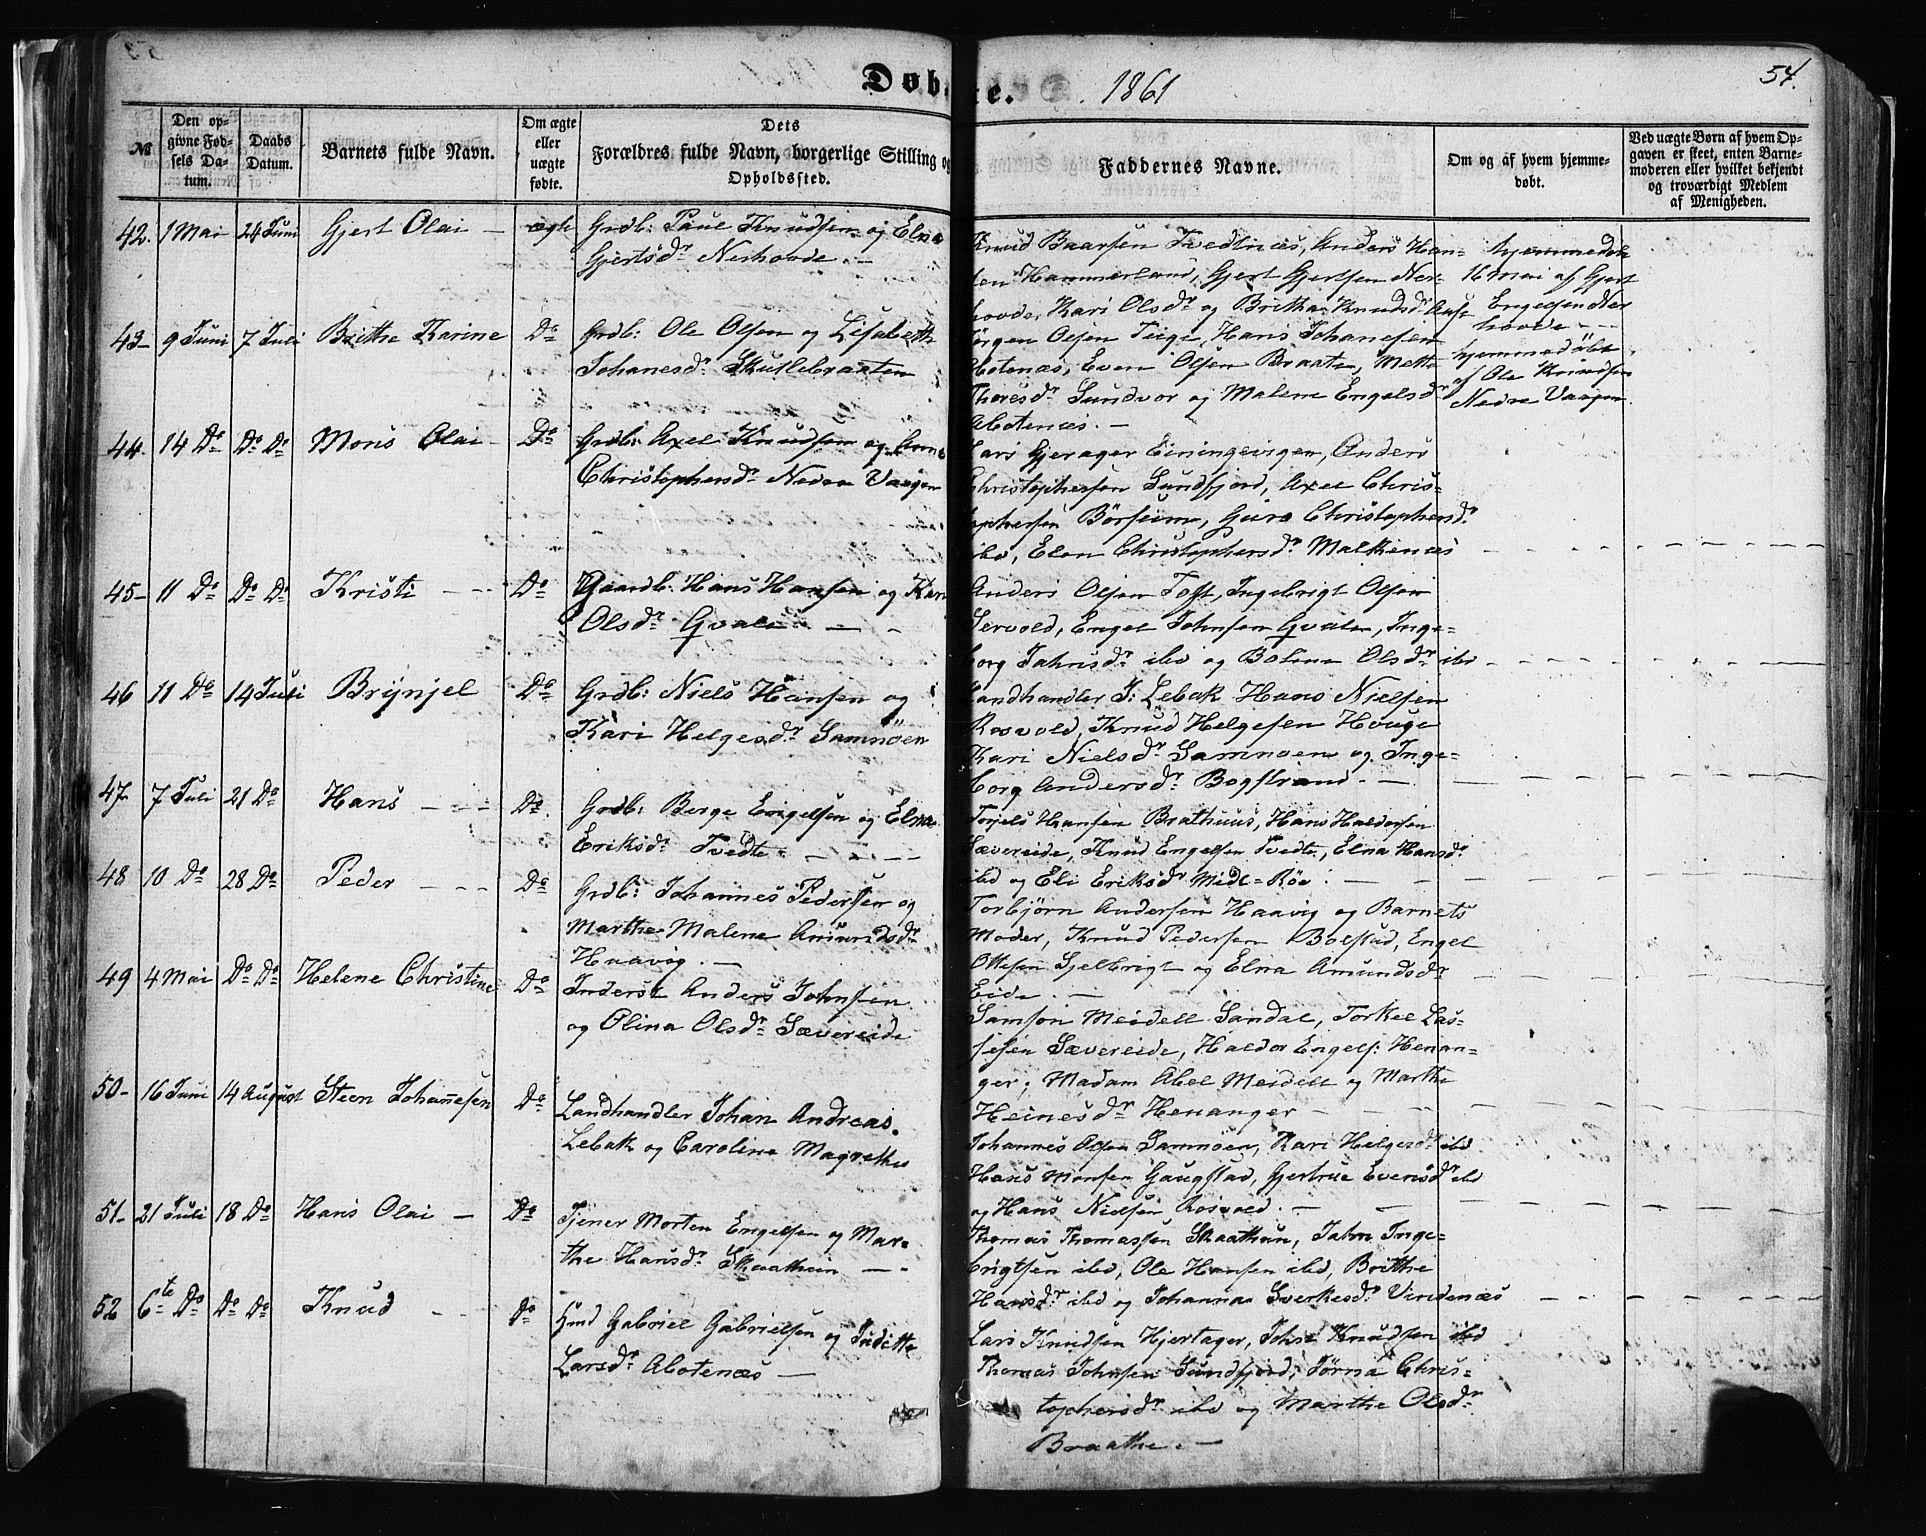 Døb e. 1861
54.
№
Den opgivne Fødsels Datum.
Daabs Datum.
Barnets fulde Navn.
Om ægte eller uægte fødte.
Dets Forældres fulde Navn, borgerlige Stilling og Opholdssted.
Faddernes Navne.
Om og af hvem hjemmedøbt.
Ved uægte Børn af hvem Opgaven er skeet, enten Barnemoderen eller hvilket bekjendt og troværdigt Medlem af Menigheden.
42. 1 Mai 24 Juni Gjert Olai — ægte Grdb: Poul Knudsen og Elna
Gjertsdr Nerhovde. —
Knud Baarsen Tvedtnæs, Anders Han-
sen Hammerland, Gjert Gjertsen Ner-
hovde, Kari Olsdr og Britha Knudsdr Aase
hjemmedøbt
16 Mai af Gjert
Engelsen Ner
hovde — -
43- 9 Juni 7 Juli Brithe Karine Do Grdb: Ole Olsen og Lisabeth
Johanesdr Skutlebraaten
Jørgen Olsen Teige, Hans Johanesen
Abotenæs, Even Olsen Braate, Mette
Thoresdr Sundvor og Malene Engelsdr
Abotenæs. —
hjemmedøbt
af Ole Knudsen
Nedre Vaagen
44. 14 Do Do Do Mons Olai — Do Grdb: Axel Knudsen og Anne
Christophersdr Nedre Vaagen
Lars Gjerager Einingevigen, Anders
Christophersen Sundfjord, Axel Chris-
tophersen Börseim, Guro Christophersdr
ibd, Elen Christophersdr Malkenæs
45- 11 Do Do Do Kristi - - Do Gaardb: Hans Hansen og Kari
Olsdr Qvale — -
Anders Olsen Toft, Ingebrigt Olsen
Servold, Engel Johnsen Qvale, Inge-
borg Jahnsdr ibd og Bolena Olsdr ibd
46 11 Do 14 Juli Brynjel Do Grdb: Niels Hansen og
Kari Helgesdr Samnøen
Landhandler J: Lebak Hans Nielsen
Rosvold, Knud Helgesen Houge
Kari Nielsdr Samnøen og Inge-
borg Andersdr Bogstrand. —
47- 7 Juli 21 Do Hans - - - Do. Grdb: Berge Engelsen og Elna
Eriksdr Tvedte — - —
Torjels Hansen Brathuus, Hans Haldorsen
Sævereide, Knud Engelsen Tvedte, Elna Hansdr
ibd og Eli Eriksdr Midt=Röe. —
48 10 Do 28 Do Peder - - - Do Grdb: Johannes Pedersen og
Marthe Malene Amundsdr
Haavig. —
Torbjörn Andersen Haavig og Barnets
Moder, Knud Pedersen Bolstad, Engel
Ottesen Gjelbrigt og Elna Amundsdr
Eide. —
49 4 Mai Do Do Helene Christine Do Inderst Anders Johnsen
og Olina Olsdr Sævereide
Samson Meidell Sandal, Torkel Las-
sesen Sævereide, Haldor Engels: Henan-
ger, Madam Abel Meidell og Marthe
Heinesdr Henanger —
50- 16 Juni 14 August Steen Johannesen Do Landhandler Johan Andreas
Lebak og Caroline Magrethe
Johannes Olsen Samnøen, Kari Helgesdr ibd
Hans Monsen Gaugstad, Gjertrue Evensdr ibd
og Hans Nielsen Rosvold. —
51- 21 Juli 18 Do Hans Olai — Do Tjener Morten Engelsen og Mar-
the Hansdr Skaathun — -
Thomas Thomassen Skaathun, Jahn Inge-
brigtsen ibd, Ole Hansen ibd, Brithe
Hansdr ibd og Johanna Sverkesdr Vindenæs
52 6te Do Do Do Knud - - Do Hmd Gabriel Gabrielsen og Juditte
Larsdr Abotenæs —
Lars Knudsen Hjertager, Johs Knudsen ibd
Thomas Johnsen Sundfjord, Jørna Chris-
tophersdr ibd og Marthe Olsdr
Braathe. —